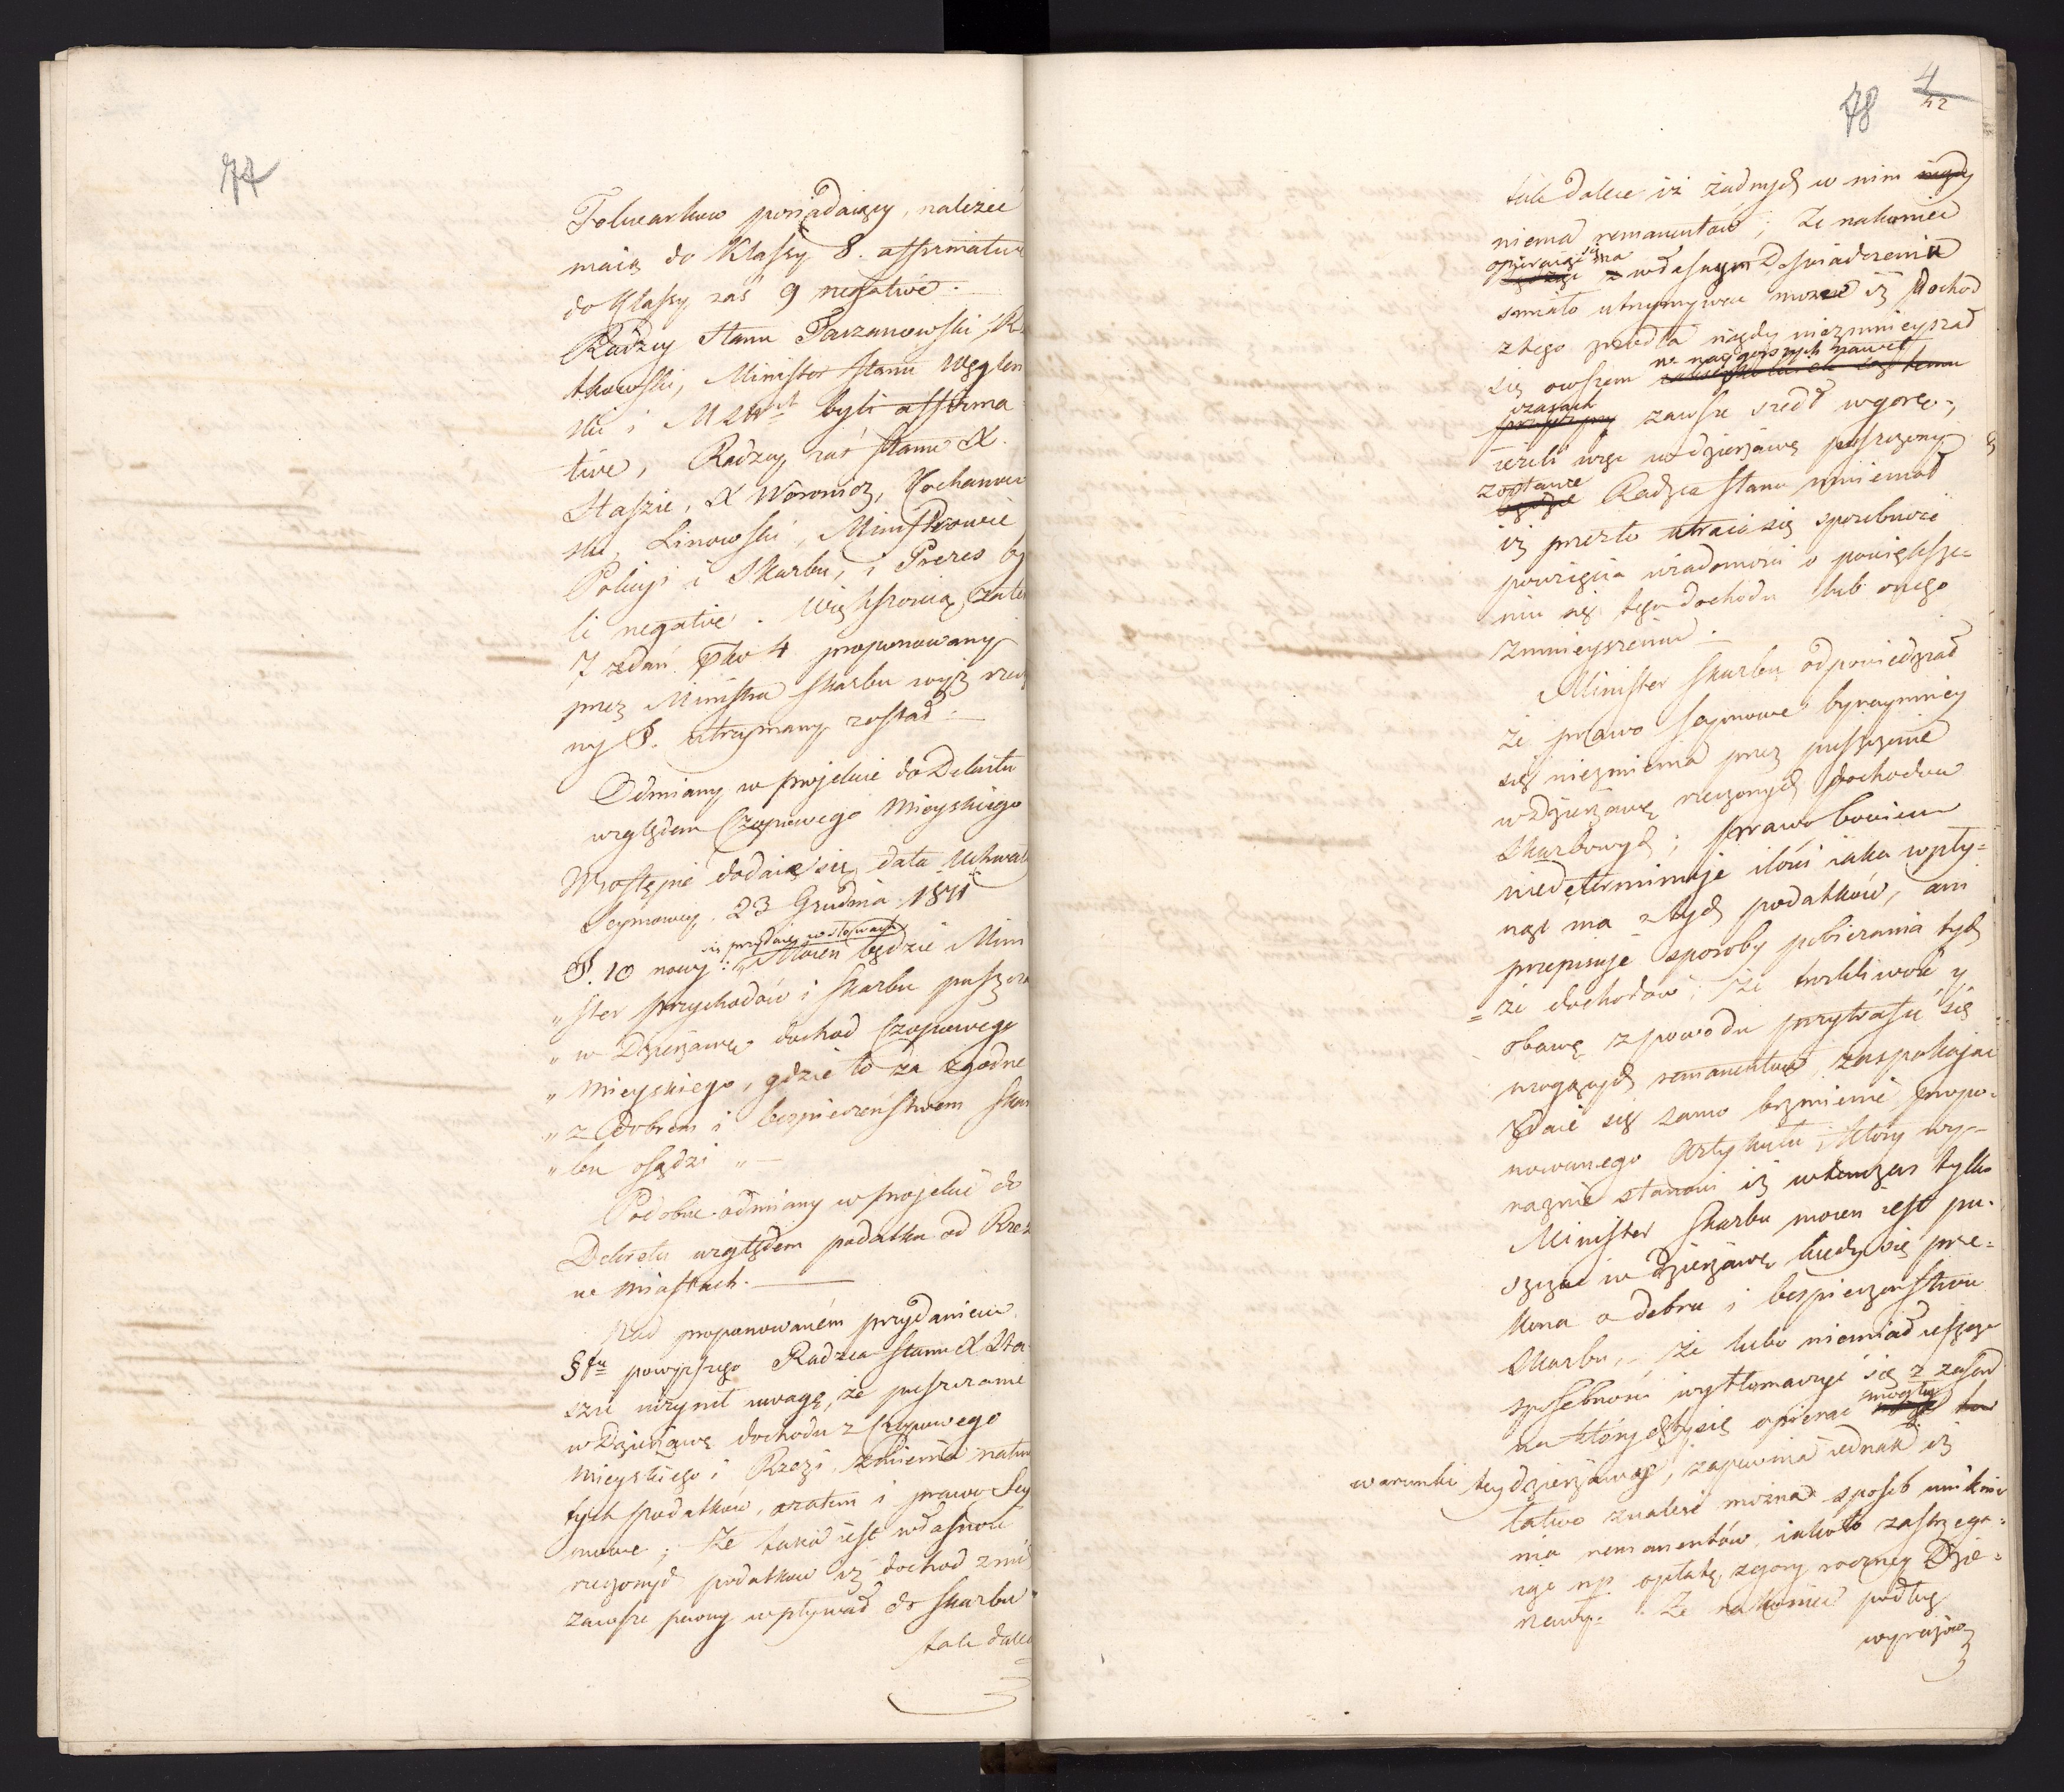 77
Folwarkow posiadaiący, należeć
maią do Klassy 8. affirmative
do Klassy zaś 9 negative.
Radzcy Stanu Tarzanowski,
Minister Stanu Węgleń
ski i byli affirma
tive, Radzcy zaś Stanu X.
Staszic, X Woronicz, Kochanow
ski, Linowski, Ministrowie
Policyi i Skarbu, i Prezes by
li negative. Większością zatem
7 zdań plko 4 proponowany
przez Ministra Skarbu wyż rzeczo
ny §. utrzymany został.
Odmiany w projekcie do Dekretu
względem Czopowego Mieyskiego
W wstępie dodaie się data Uchwały
Seymowey 23 Grudnia 1811
się przydaie w słowach
§. 10 nowy: „Mocen będzie Mini
„ster Przychodów i Skarbu puszczać
„w Dzierżawę dochod Czopowego
„Mieyskiego, gdzie to za zgodne
„z dobrem i bezpieczeństwem Skar
„bu osądzi „
Podobne odmiany w projekcie do
Dekretu względem podatku od Rzezi
w miastach.
Nad proponowaném przydaniem
§fu powyższego Radzca Stanu X Sta
szic uczynił uwagę, że puszczanie
w Dzierżawę dochodu z Czopowego
Mieyskiego i Rzezi, zmienia naturę
tych podatków, zatem i prawo Sey
mowe; Że taka iest własność
rzeczonych podatkow iż dochod z nich
zawsze pewny wpływał do Skarbu
tak dalece
78
4
42
tak dalece iż żadnych w nim nigdy
niema remanentów; Że nakoniec
opieraiąc się na
własnym Doświadczeniu
śmiało utrzymywać może iż dochod
z tego zrodła nigdy niezmnieyszał
się owszem w naygorszych nawet
czasach
zawsze szedł w gorę;
ieżeli więc w dzierżawę puszczony
zostanie
będzie Radzca Stanu mniemał
iż przezto utraci się sposobność
powzięcia wiadomości o powiększe=
niu się tego dochodu lub onego
zmnieyszeniu.
Minister Skarbu odpowiedział
że prawo Seymowe bynaymniey
się niezmienia przez puszczenie
w Dzierżawę rzeczonych dochodow
Skarbowych; prawo bowiem
niedeterminuje ilości iaka wpły=
nąć ma z tych podatków, ani
przepisuje sposoby pobierania tych
=że dochodow; Że troskliwość y
obawę z powodu przytrafić się
mogących remanentow, zaspokajać
zdaie się samo brzmienie propo=
nowanego Artykułu, który wy=
raznie stanowi iż wtenczas tylko
Minister Skarbu mocen iest pu=
szczać w dzierżawę kiedy się prze=
kona o dobru i bespieczeństwie
Skarbu, Że lubo niemiał ieszcze
sposobności wytłomaczyć się z zasad
na których by się opierać mogły
warunki tey dzierżawy, zapewnia iednak iż
łatwo znaleść można sposob uniknie
nia remanentów, iakoto zastrzega=
iąc np. opłatę z gory roczney Dzie=
rzawy. Że nakoniec podług
wyrazow